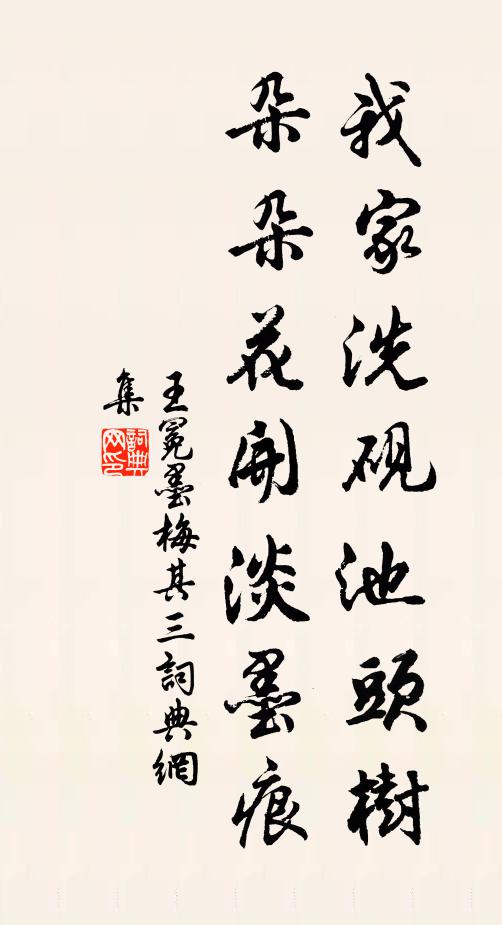 我家洗硯池頭樹
朵朵花開淡墨痕
王冕墨梅其三詞典網
集
詞典
网印